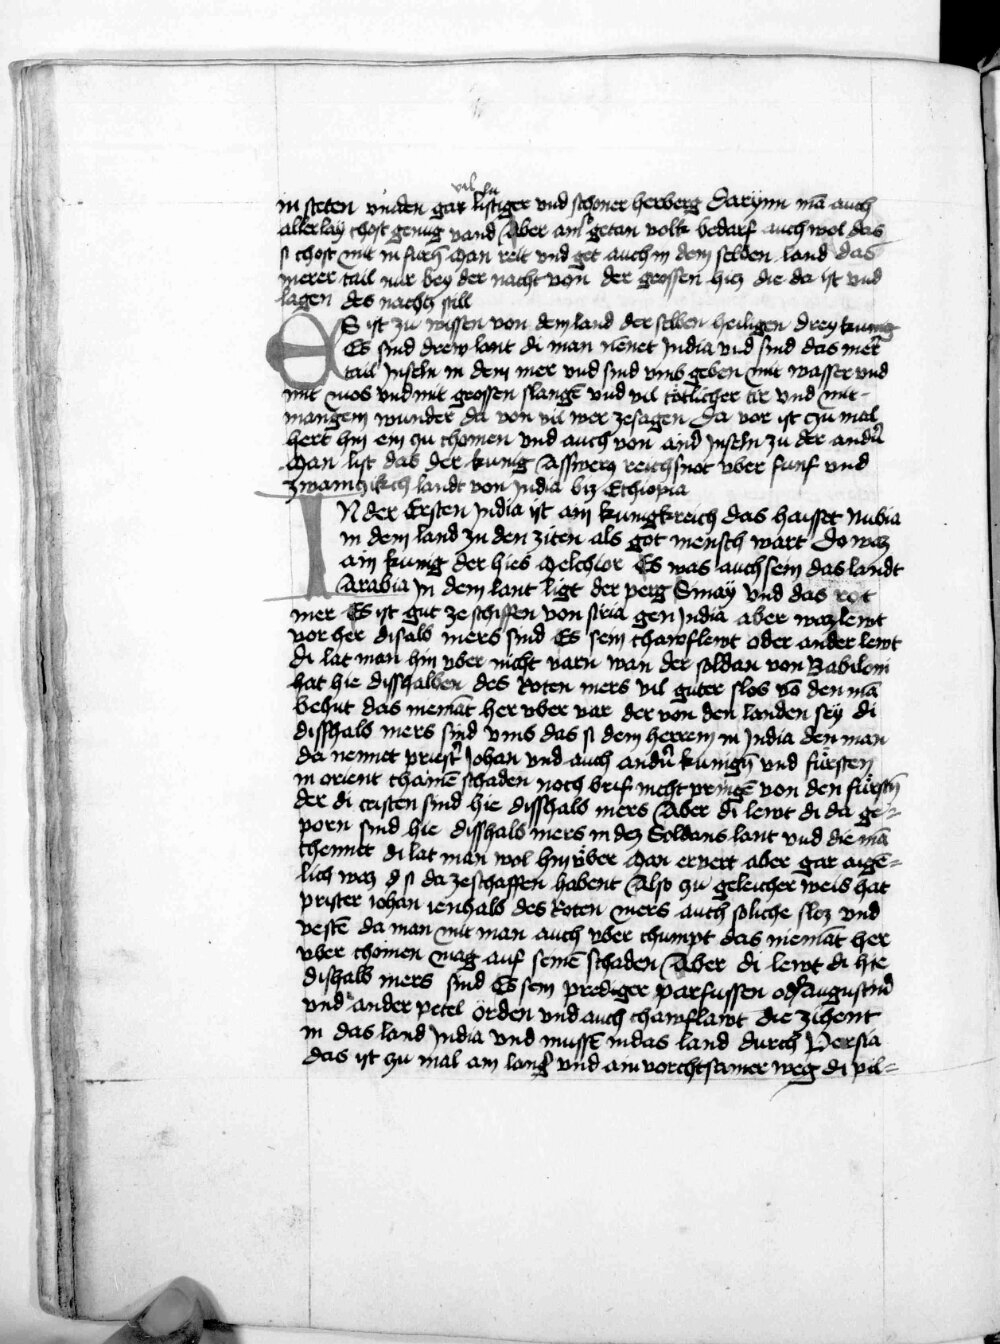 vil zu
in steten vnden gar lustiger vnd schoner herberg Darynn mā auch
allerlay chost genug vand Aber am getan volk bedarf auch wol das
si chost mit in furn Man reit vnd get auch in dem selben land das
merer tail nur bey der nacht von der grossen hicz die da ist vnd
lagen des nachcz still
ES ist zu wissen von dem land der selben heiligen drey kunig
Es sind drew lant di man nēnet India vnd sind das mer
tail Inseln in dem mer vnd sind vmb geben mit wasser vnd
mit mos vnd mit grossen slangē vnd vil tötlicher tir vnd mit
mangem wunder da von vil wer zesagen Da vor ist zu mal
hert hin ein zu chomen vnd auch von ainr Inseln zu der andn
Man list das der kunig Asswerg reichsnot vber funf vnd
zwainczikch landt von India biz Ethiopia
IN der Ersten India ist ain kunigkreich das haisset Nubia
in dem land zu den ziten als got mensch wart Do waz
ain kunig der hies Melchior Es was auch sein das landt
Arabia In dem lant ligt der perg Sinay vnd das rot
mer Es ist gut ze schiffen von siria gen India aber waz lewt
vor her disalb mers sind Es sein chawflewt oder ander lewt
di lat man hin vber nicht varn wan der soldan von Babiloni
hat hie disshalben des Roten mers vil guter slos vō den mā
behut das niemāt her vber var der von den landen sey di
disshalb mers sind vmb das si dem herren in India den man
da nennet priestr Johan vnd auch andn kunign vnd fürsten
in orient chainē schaden noch brif nicht pringē von den fürstn
der di cristen sind hie disshalb mers Aber di lewt di da ge-
porn sind hie disshalb mers in dez Soldans lant vnd die mā
chennet di lat man wol hin vber Man ervert aber gar aigē-
lich waz si da ze schaffen habent Also zu geleicher weis hat
prister iohan ienhalb des Roten mers auch soliche sloz vnd
vestē da man mit man auch vber chumpt das niemāt her
vber chomen mag auf seinē schaden Aber di lewt di hie
dishalb mers sind Es sein prediger parfussen odr augustinr
vnd ander petel örden vnd auch chawflawt die zihent
in das land India vnd mussē in das land durch Persia
das ist zu mal ain langr vnd ain vorchtsamer weg di pil-